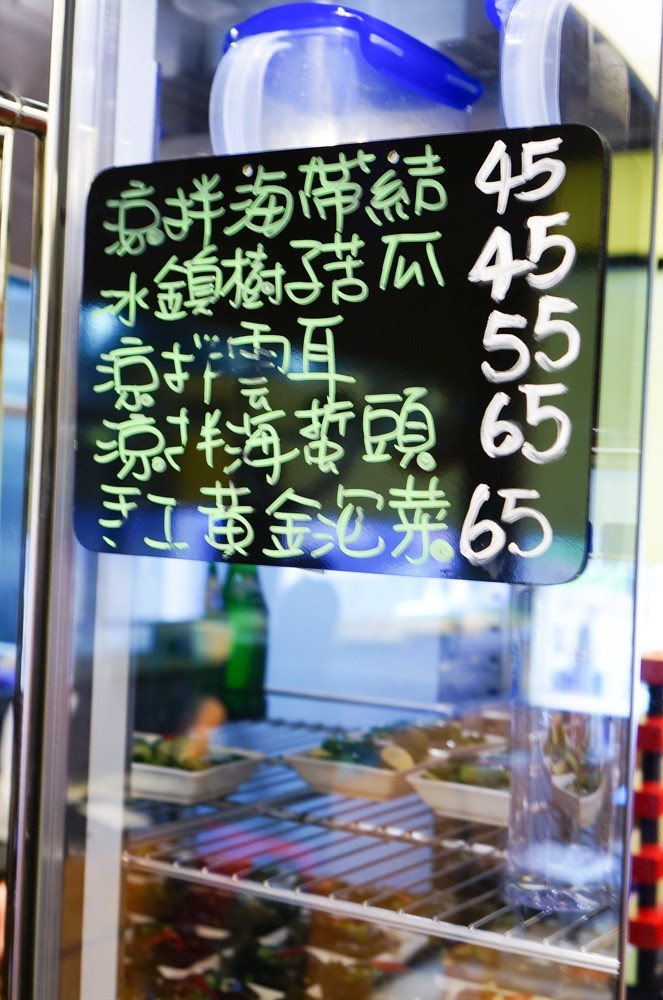 涼拌海帶結 45
水鎖樹子苦瓜 45
涼拌雲耳 55
涼拌海蜇頭 65
紅黃金泡菜 65